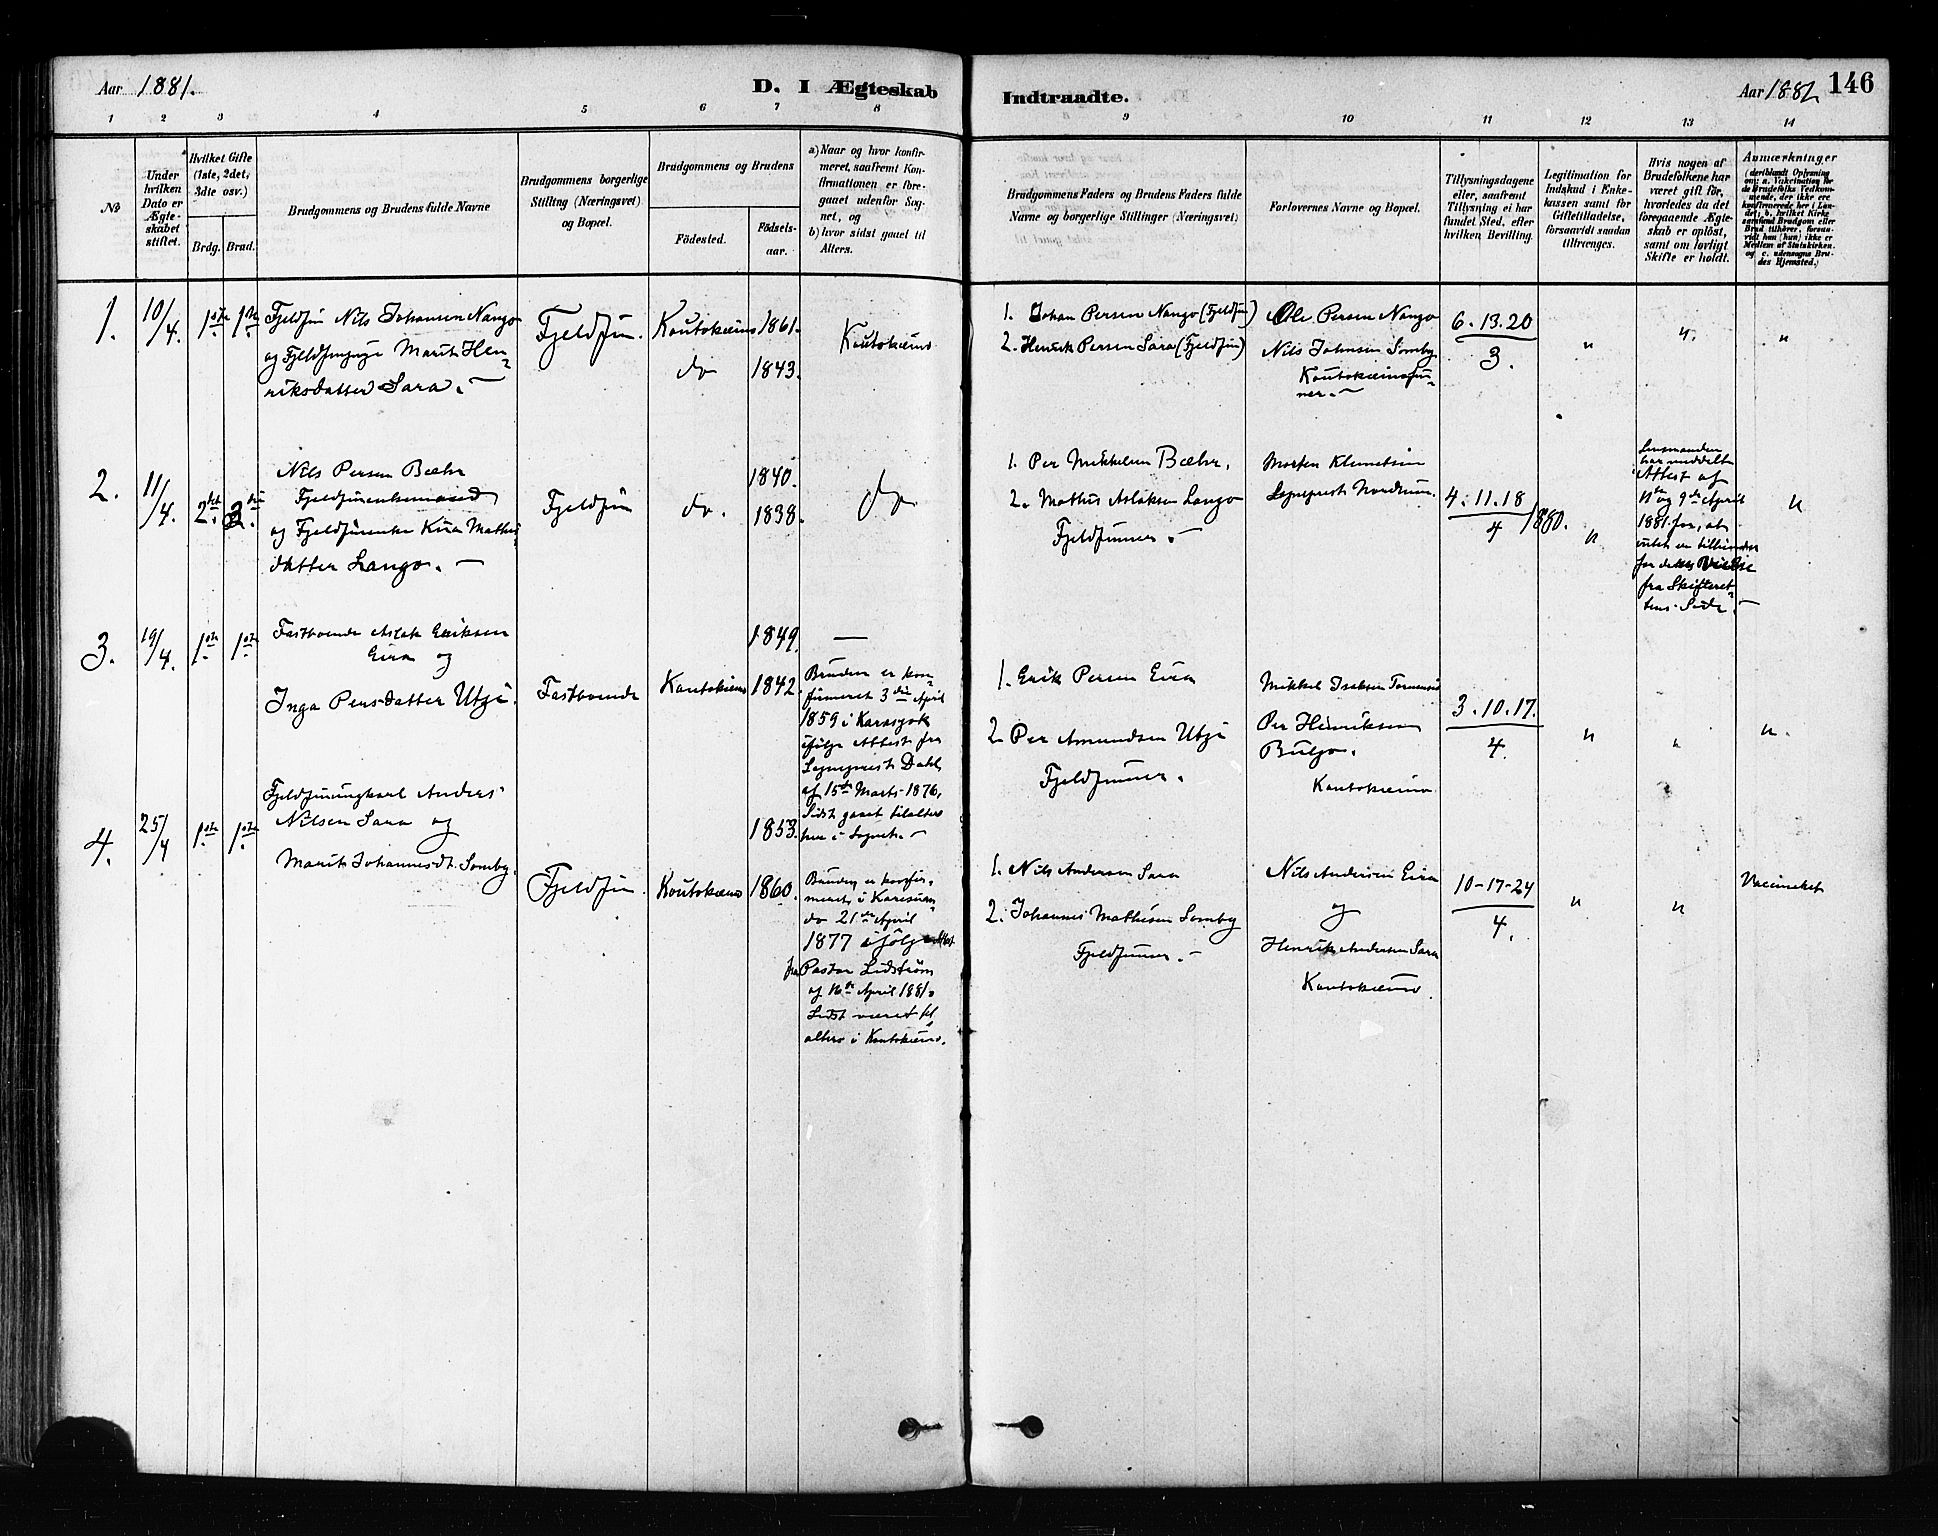 Aar 1881.
D. I Ægteskab
Indtraadte.
Aar 1882
146
1 2 3 4 5 6 7 8 9 10 11 12 13 14
No
Under hvilken Dato er Ægteskabet stiftet.
Hvilket Gifte (1ste, 2det, 3die osv.)
Brdg. Brud.
Brudgommens og Brudens fulde Navne
Brudgommens borgerlige Stilling (Næringsvei) og Bopæl.
Brudgommens og Brudens
Födested.
Födselsaar.
a) Naar og hvor konfirmeret, saafremt Konfirmationen er foregaaet udenfor Sognet, og
b) hvor sidst gaaet til Alters.
Brudgommens Faders og Brudens Faders fulde Navne og borgerlige Stillinger (Næringsvei)
Forlovernes Navne og Bopæl.
Tillysningsdagene eller, saafremt Tillysning ei har fundet Sted, efter hvilken Bevilling.
Legitimation for Indskud i Enkekassen samt for Giftetilladelse, forsaavidt saadan tiltrænges.
Hvis nogen af Brudefolkene har været gift för, hvorledes da det foregaaende Ægteskab er oplöst, samt om lovligt Skifte er holdt.
Anmærkninger (deriblandt Oplysning om: a. Vakcination for de Brudefolks Vedkommende, der ikke ere konfirmerede her i Landet; b. hvilket Kirkesamfund Brudgom eller Brud tilhörer, forsaavidt han (hun) ikke er Medlem af Statskirken, og c. udensogns Brudes Hjemsted.)
1. 10/4. 1ste 1ste
Fjeldfin Nils Johansen Nango
og Fjeldfinpige Marit Hen-
riksdatter Sara. —
Fjeldfin.
Koutokeino 1861.
do 1843.
Koutokeino
1. Johan Persen Nango (Fjeldfin)
2. Henrik Persen Sara (Fjeldfin)
Ole Persen Nango
Nils Johnsen Somby
Koutokeinofin-
ner. —
6. 13. 20
3.
" " "
2. 11/4. 2det
Nils Persen Bæhr
Fjeldfinenkemand
og Fjeldfinenke Mathis-
datter Lango. —
Fjeldfin
do. 1840.
1838.
do
1. Per Mikkelsen Bæhr.
2. Mathis Aslaksen Lango
Fjeldfinner. —
Morten Klemetsen
Sogneprest Nordrum.
4. 11. 18
4 /1880.
"
Lensmanden
har meddelt
Attest af
og 9de April
1881 for, at
intet er tilhinder
for dette Vielse
fra Skifteret-
tens Side. —
"
3. 19/4. 1ste 1ste
Fastboende Aslak Eriksen
Eira og
Inga Persdatter Utzi.
Fastboende
Koutokeino 1849.
1842.
—
Bruden er kon-
firmeret 3die April
1859 i Karasjok
ifölge Attest fra
Sogneprest Dahl
af 15de Marts 1876,
Sidst gaaet tilalters
her i Sognet. —
1. Erik Persen Eira
2. Per Amundsen Utzi
Fjeldfinner.
Mikkel Isaksen
Per Henriksen
Bulgo.
Koutokeino
3. 10. 17.
4.
" " ".
4. 25/4 1ste 1ste
Fjeldfinungkarl Anders
Nilsen Sara og
Marit Johannesdt. Somby.
Fjeldfin.
Koutokeino 1853.
1860.
Bruden er konfir-
meret i Karesuan-
do 21de April
1877 ifölge Attest
fra Pastor Lidström
af 16de April 1881.
Sidst været til
alters i Koutokeino.
1. Nils Andersen Sara
2. Johannes Mathisen Somby
Fjeldfinner. —
Nils Andersen Eira
og
Henrik Andersen Sara
Koutokeino.
10-17-24
4.
" "
Vaccineret